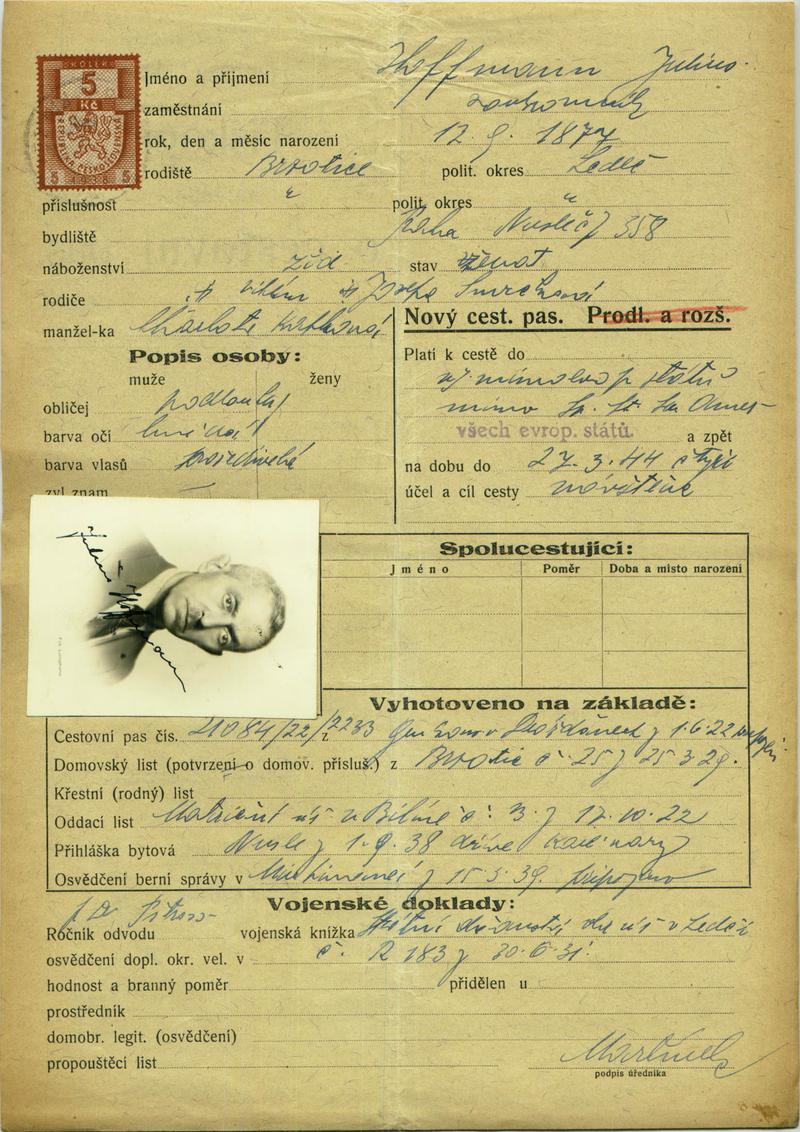 KOLEK
5
Kč
REPUBLIKA ČESKOSLOVENSKÁ
5 5
Jméno a příjmení Hoffmann Julius
zaměstnání soukromník
rok, den a měsíc narození 12. 9. 1877
rodiště Brzotice polit. okres Ledeč
příslušnost " polit. okres "
bydliště Praha Nusle č 358
náboženství žid stav ženat
rodiče Josefa
manžel-ka
Nový cest. pas. Prodl. a rozš.
Popis osoby:
muže ženy
obličej podlouhlý
barva očí hnědé
barva vlasů prošedivělé
zvl znam. —
Platí k cestě do
mimoevrop. států
mimo
všech evrop. států. a zpět
na dobu do 27. 3. 44 čtyři
účel a cíl cesty návštěva
Julius Hoffmann
Spolucestující:
Jméno Poměr Doba a místo narození
Vyhotoveno na základě:
Cestovní pas čís. 21084/22/2233 z 1.6.22
Domovský list (potvrzení o domov. přísluš.) z Brzotic č 25 z 25 3 29.
Křestní (rodný) list
Oddací list Matriční úř. v Bílině č. 3. z 17. 10. 22
Přihláška bytová Nusle z 1. 9. 38 dříve Karl. Vary
Osvědčení berní správy v z 15. 5. 39. připojeno
Vojenské doklady:
Ročník odvodu vojenská knížka Státní úř. v Ledči
osvědčení dopl. okr. vel. v č. R 183 z 30. 6. 31.
hodnost a branný poměr přidělen u
prostředník
domobr. legit. (osvědčení)
propouštěcí list
podpis úředníka